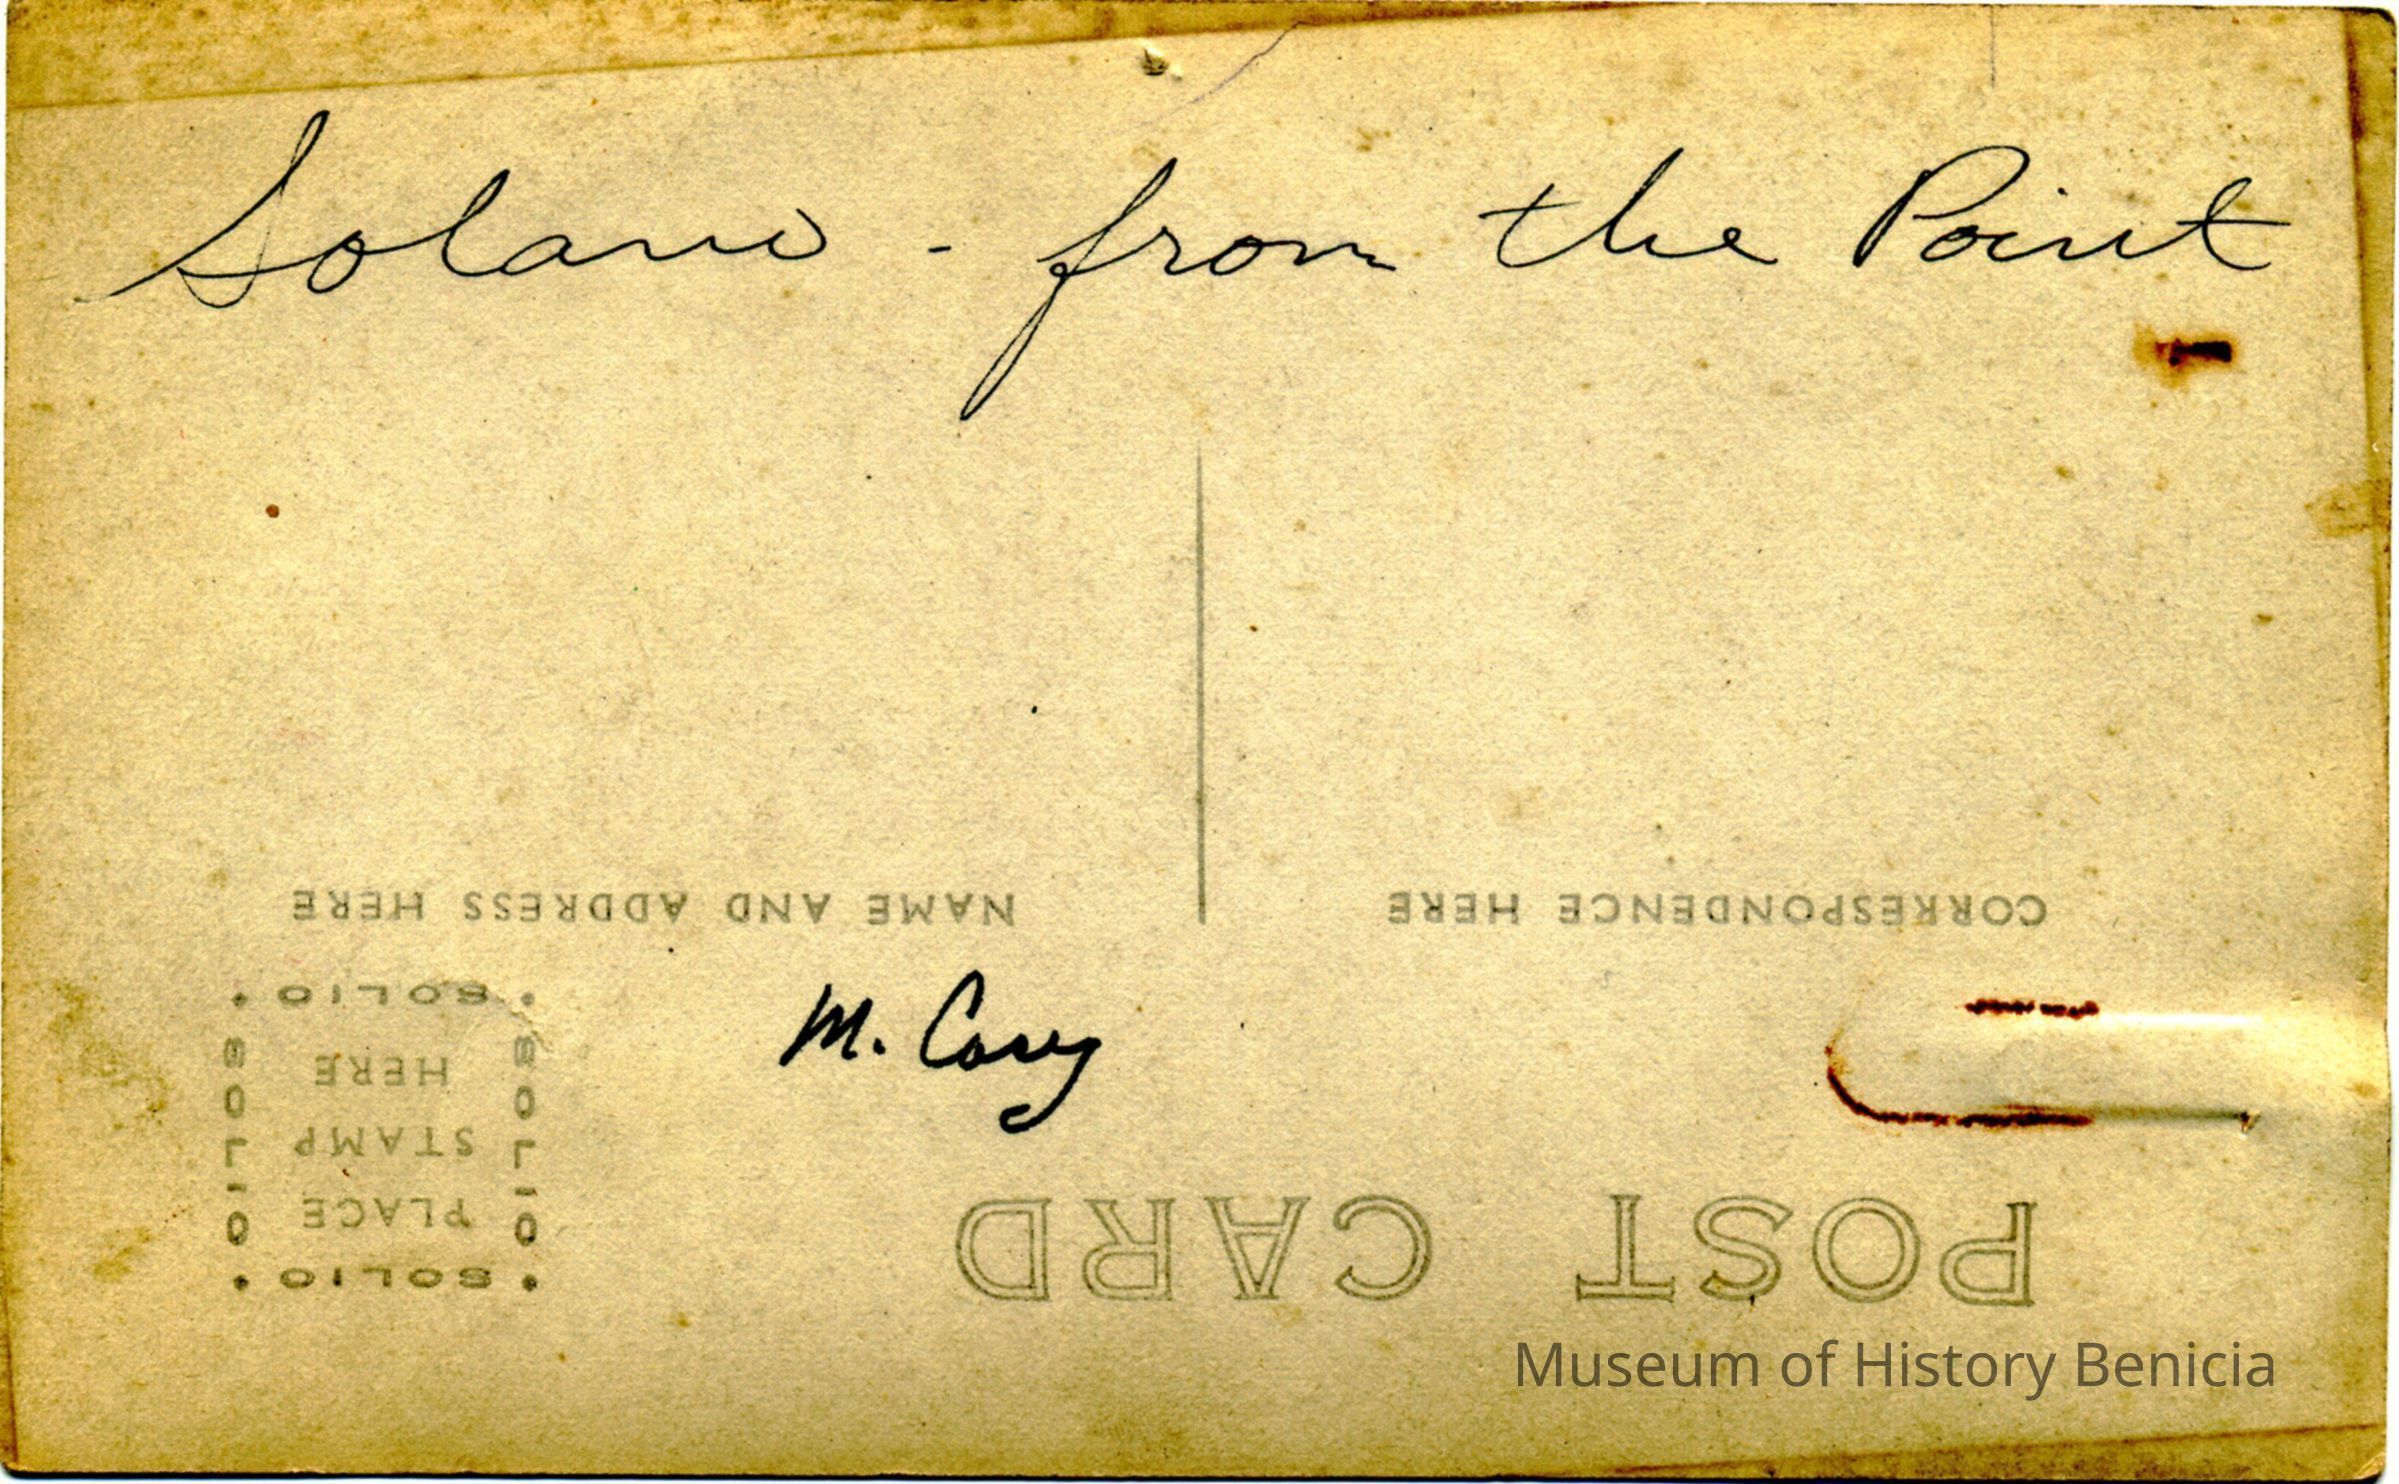 Solano - from the Point
NAME AND ADDRESS HERE
CORRESPONDENCE HERE
M. Casey
POST CARD
SOLIO
SOLIO
PLACE
STAMP
HERE
SOLIO
SOLIO
Museum of History Benicia